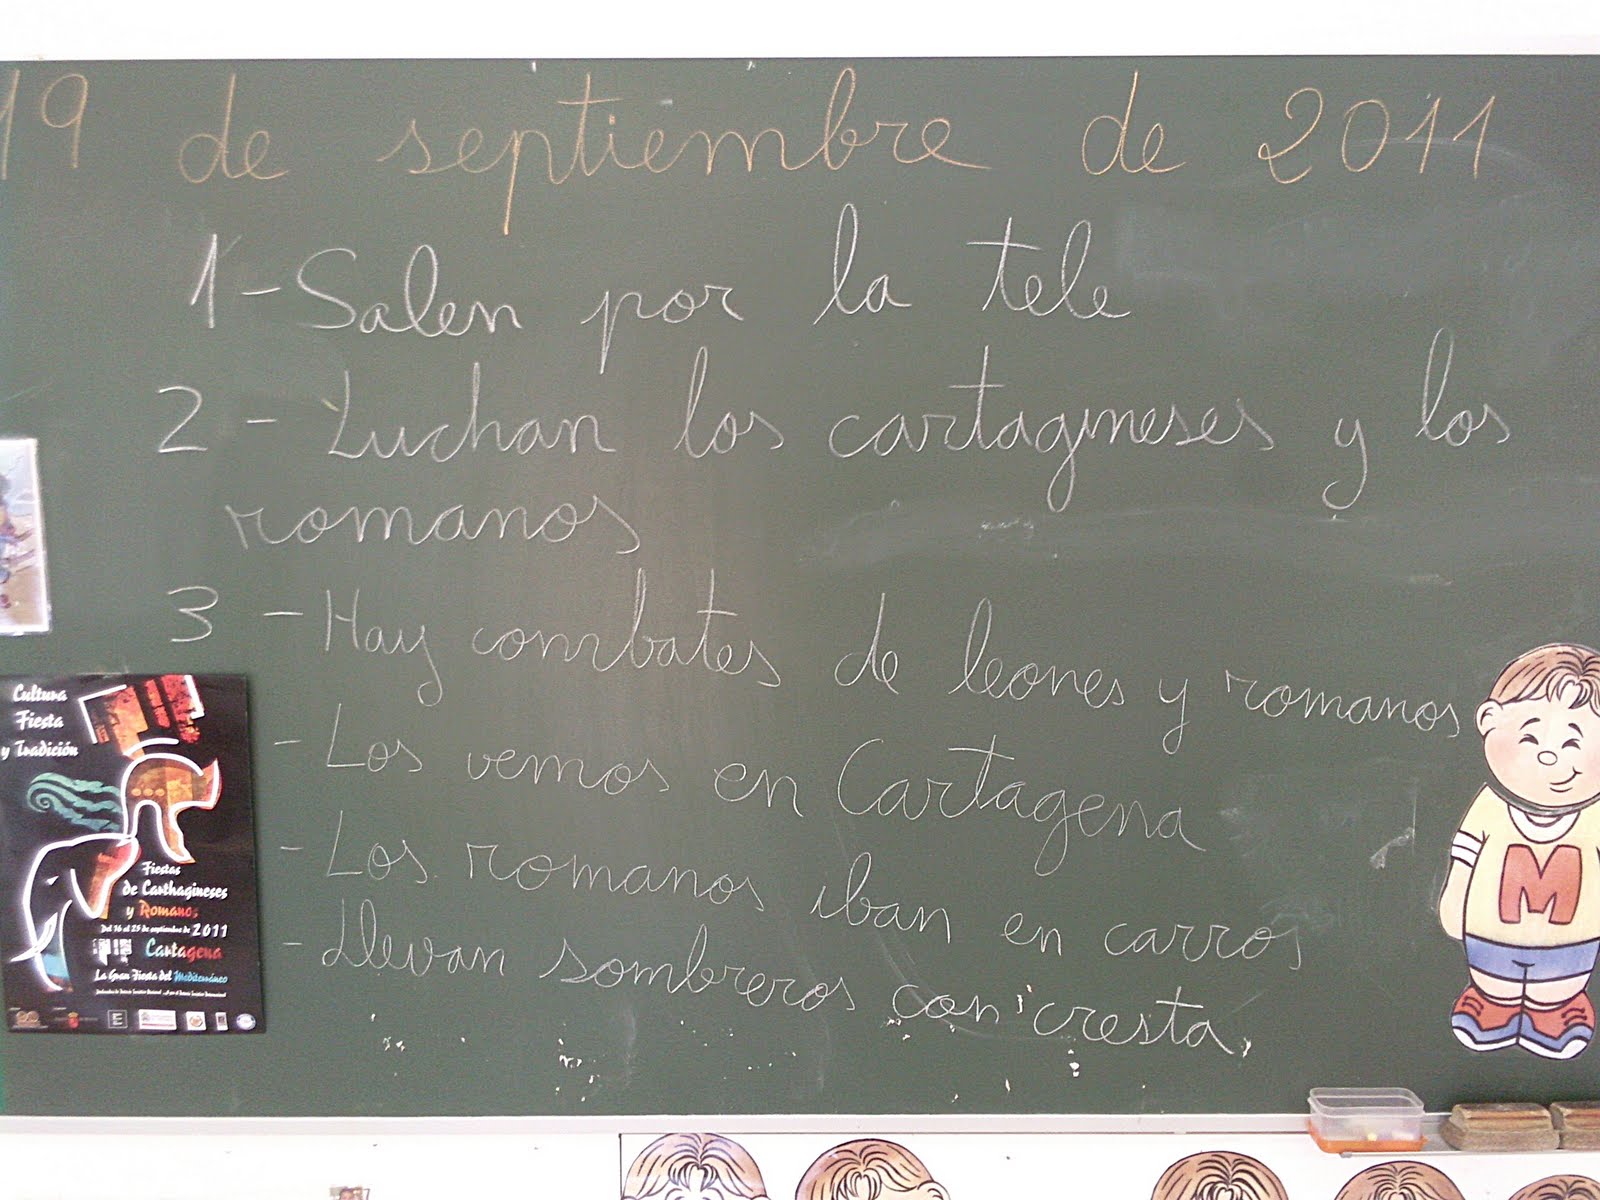 19 de septiembre de 2011
1-Salen por la tele
2-Luchan los cartagineses y los
romanos
3-Hay combates de leones y romanos
-Los vemos en Cartagena
-Los romanos iban en carros
-Llevan sombreros con cresta.
Cultura
Fiesta
y Tradición
Fiestas
de Carthagineses
y Romanos
Del 16 al 25 de septiembre de 2011
Cartagena
La Gran Fiesta del Mediterráneo
M